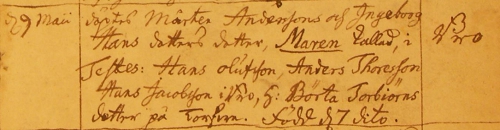 d 9 Maii döptes Mårten Andersons och Ingeborg
Hans dotters dotter, Maren kallad, i
Testes: Hans olufsson, Anders Thoresson
Hans Jacobsson i Ero, h: Börta Torbiörns
dotter på Född d 7 dito.